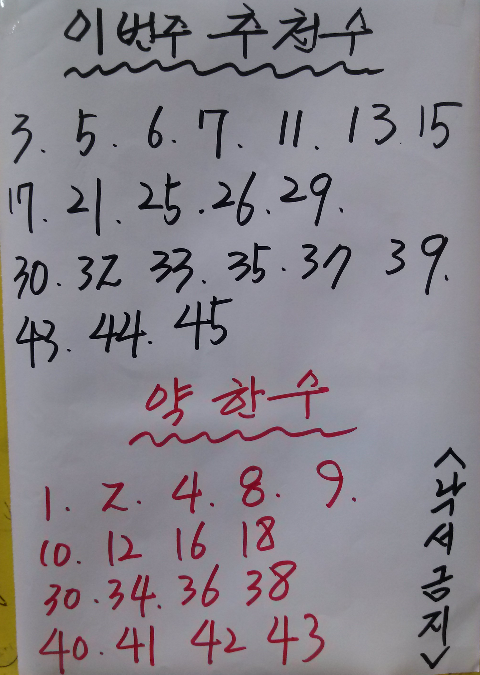 이번주 추천수
3. 5. 6. 7. 11. 13 15
17. 21. 25. 26. 29.
30. 32 33. 35. 37 39.
43. 44. 45
약한수
1. 2. 4. 8. 9.
10. 12 16 18
30. 34. 36 38
40. 41 42 43
<낙서금지>